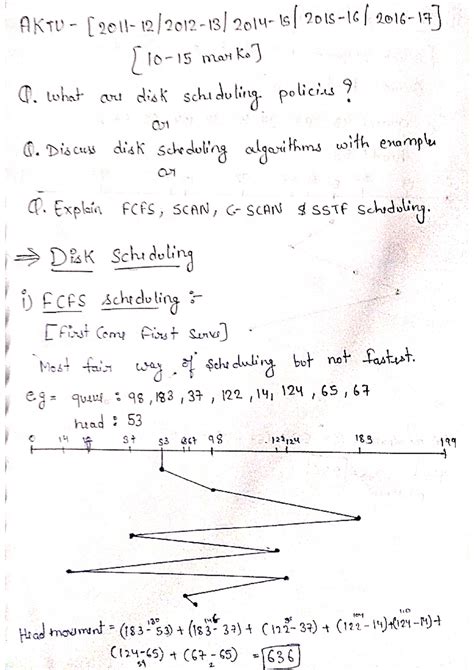 AKTU - [2011-12/2012-13/2014-15/2015-16/2016-17]
[10-15 marks]
Q. What are disk scheduling policies?
or
Q. Discuss disk scheduling algorithms with examples
or
Q. Explain FCFS, SCAN, C-SCAN & SSTF Scheduling.
⇒ Disk Scheduling
i) FCFS scheduling :-
[First Come First Serve]
Most fair way of scheduling but not fastest.
eg = queue : 98, 183, 37, 122, 14, 124, 65, 67
head : 53
0 14 37 53 65 67 98 122 124 183 199
Head movement = (183-53) + (183-37) + (122-37) + (122-14) + (124-14) +
130 146 85 108 110
(124-65) + (67-65) = 636
59 2